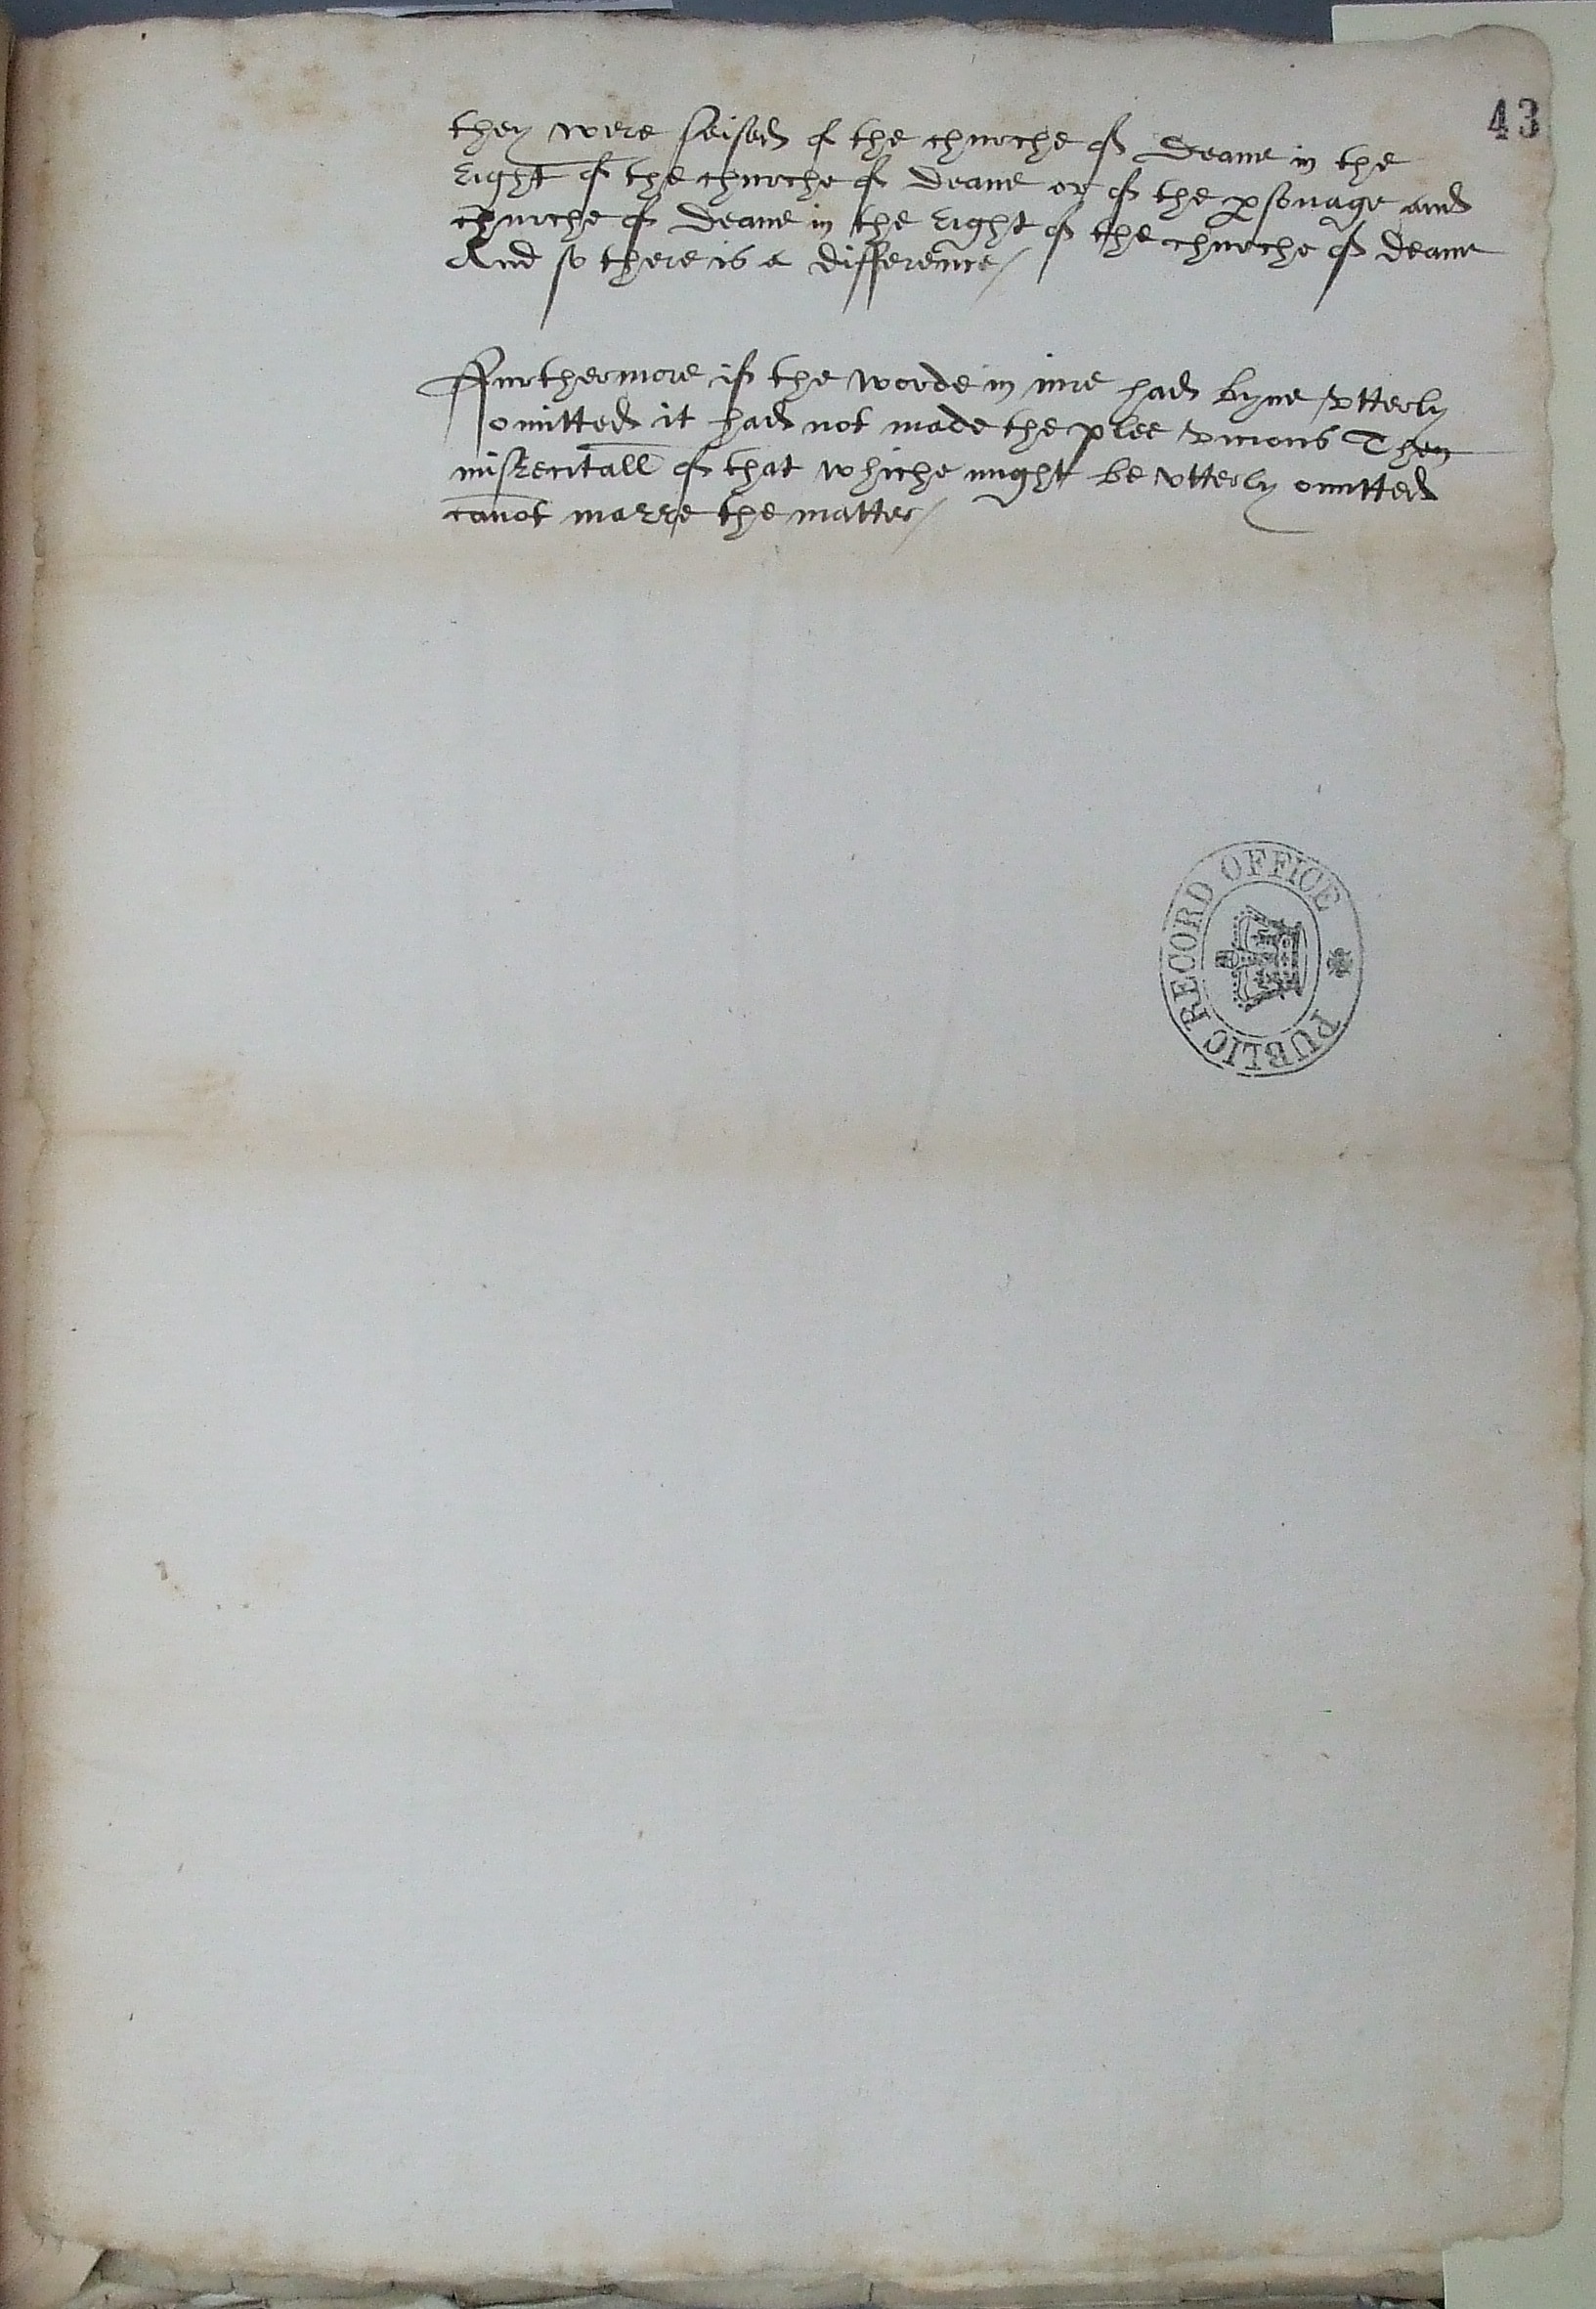 43
they were seised of the churche of Deane in the
right of the churche of Deane or of the psonage and
churche of Deane in the right of the churche of Deane
And so there is a difference /
Furthermore if the worde in iure had byne vtterly
omitted it had not made the plee vicious Then
misrecitall of that whiche might be vtterly omitted
canot marre the matter /
PUBLIC RECORD OFFICE